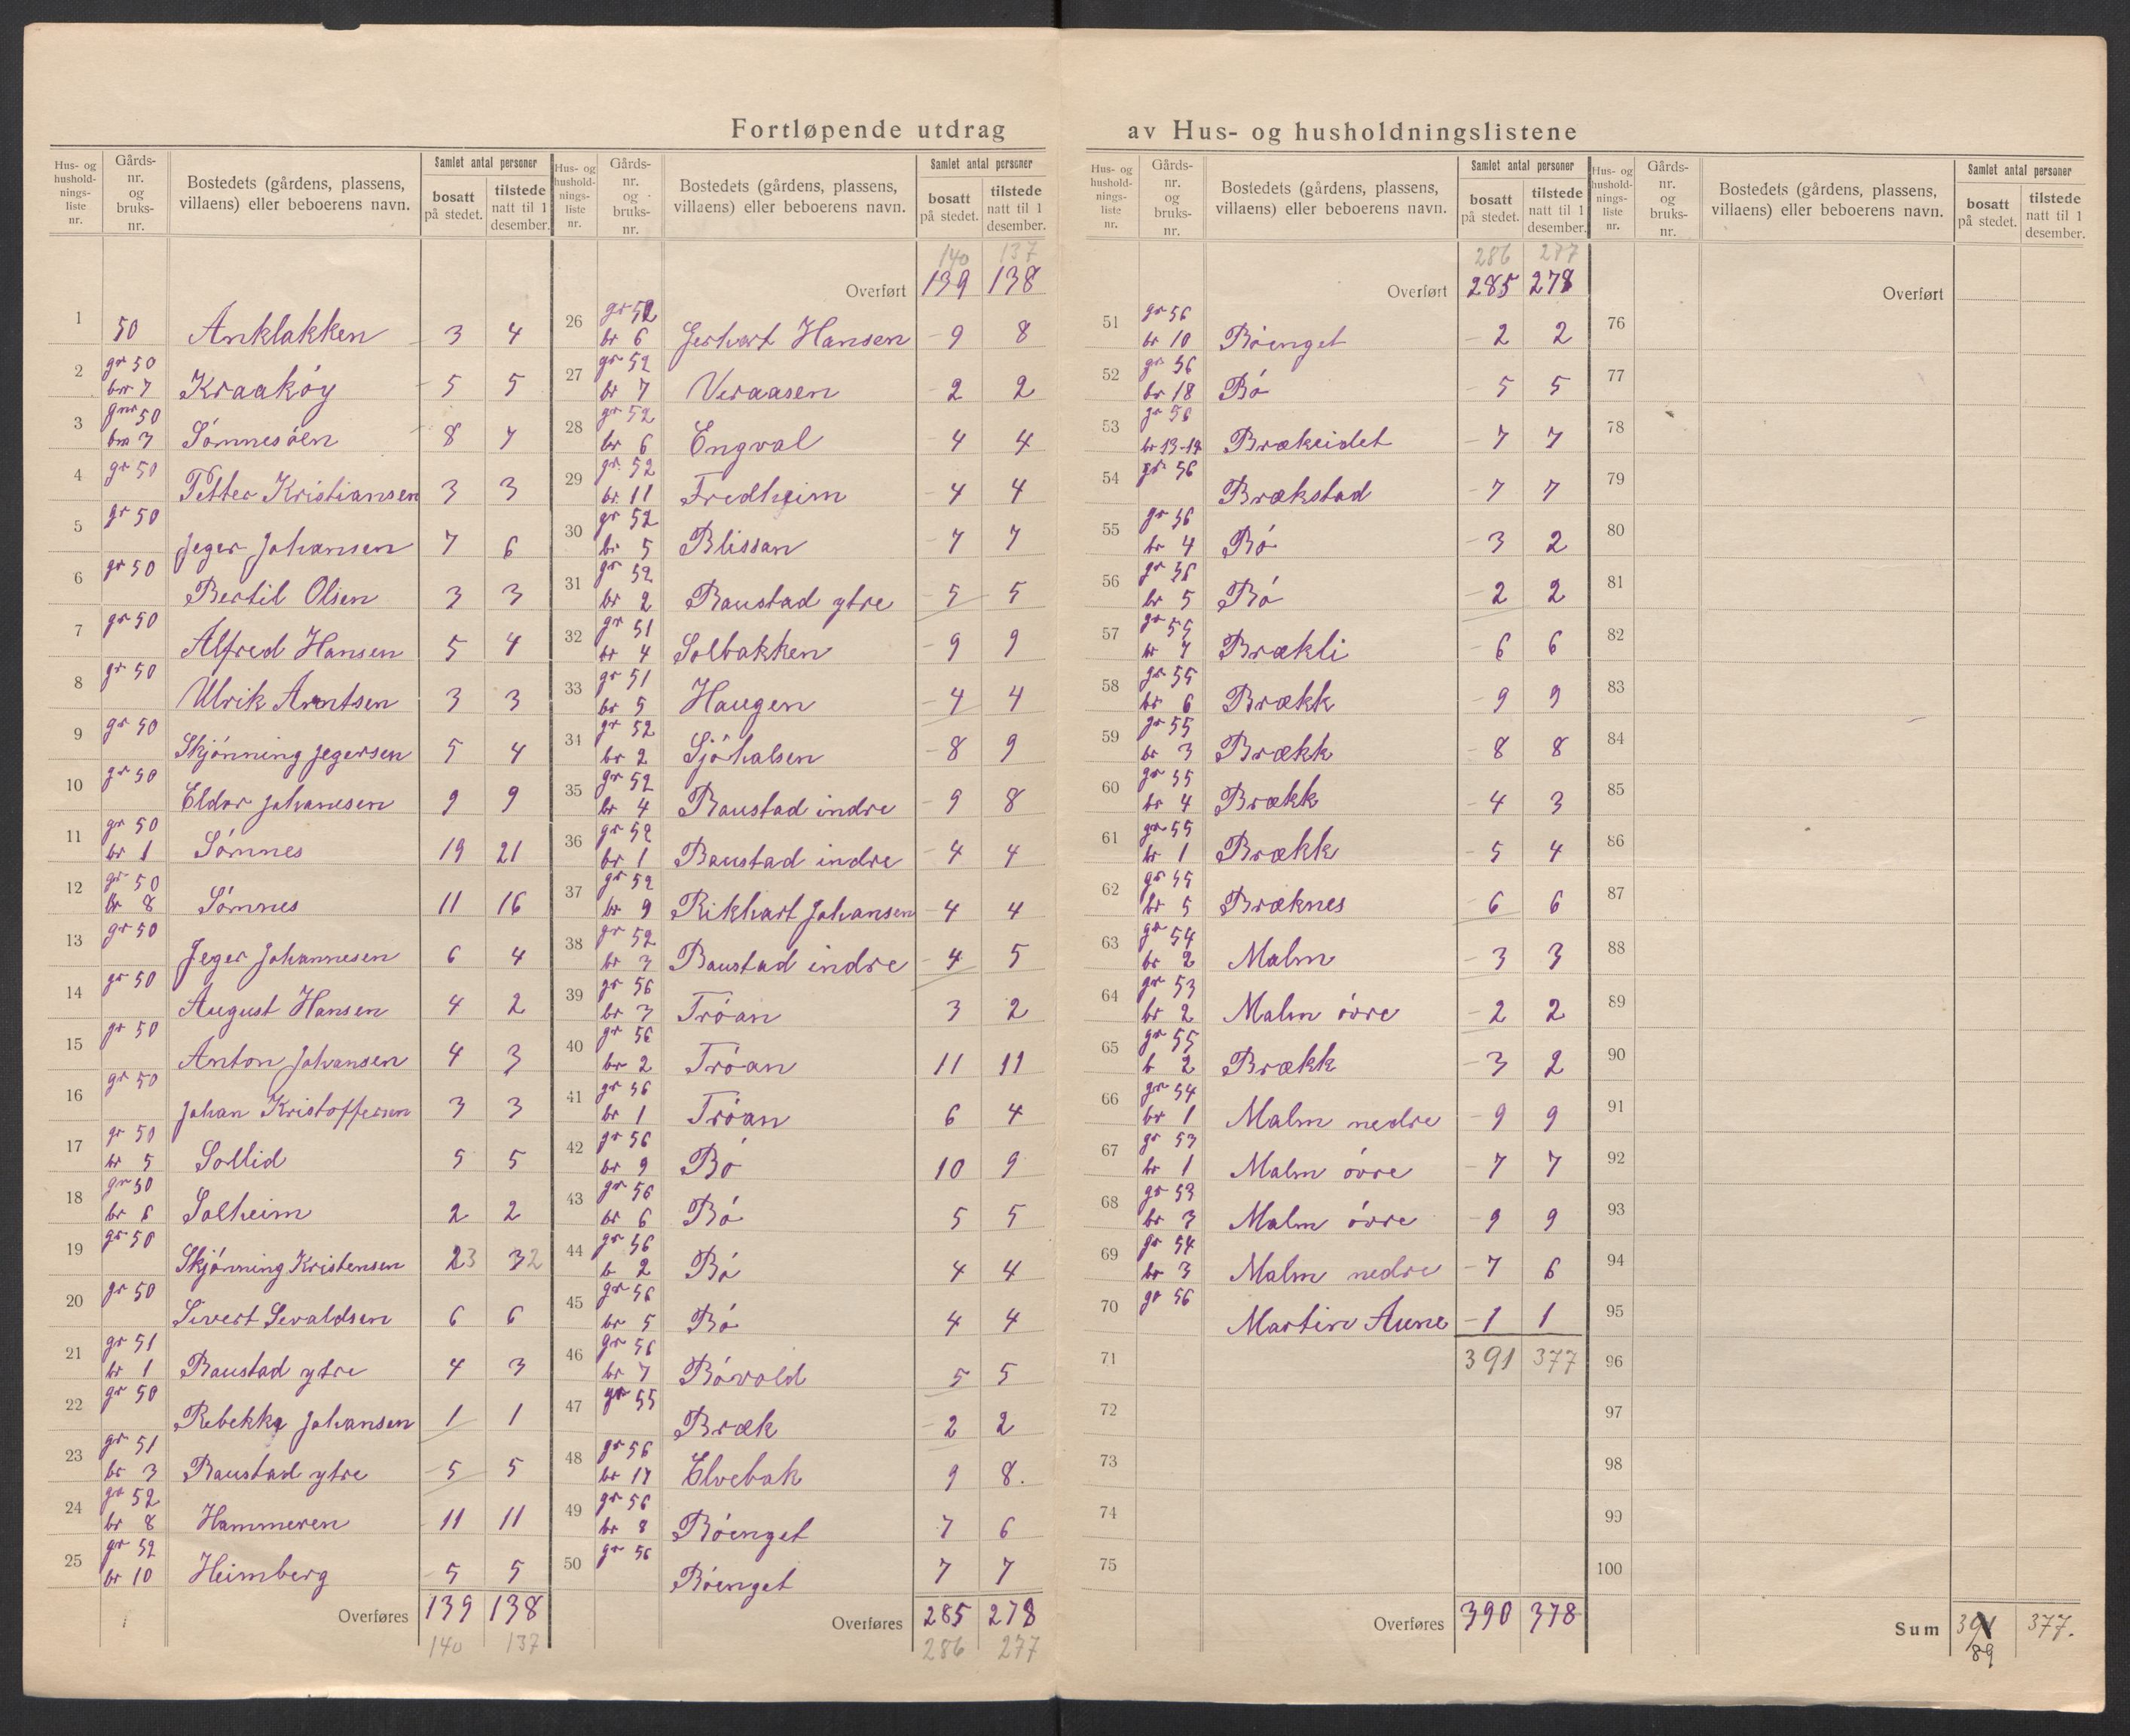 Fortløpende utdrag av Hus- og husholdningslistene
Hus- og hushold- nings- liste nr. | Gårds- nr. og bruks- nr. | Bostedets (gårdens, plassens, villaens) eller beboerens navn. | Samlet antal personer | bosatt på stedet. | tilstede natt til 1 desember.
1 50 Anklakken 3 4
2 gr 50 br 7 Kraakøy 5 5
3 gnr 50 bra 3 Sømnesøen 8 7
4 gr 50 Petter Kristiansen 3 3
5 gr 50 Jeger Johansen 7 6
6 gr 50 Bertil Olsen 3 3
7 gr 50 Alfred Hansen 5 4
8 gr 50 Ulrik Arntsen 3 3
9 gr 50 Skjønning Jegersen 5 4
10 gr 50 Eldor Johansen 9 9
11 gr 50 br 1 Sømnes 19 21
12 gr 50 br 8 Sømnes 11 16
13 gr 50 Jeger Johannesen 6 4
14 gr 50 August Hansen 4 2
15 gr 50 Anton Johansen 4 3
16 gr 50 Johan Kristoffersen 3 3
17 gr 50 br 5 Sollid 5 5
18 gr 50 br 6 Solheim 2 2
19 gr 50 Skjønning Kristensen 23 32
20 gr 50 Sivert Sevaldsen 6 6
21 gr 51 br 1 Raustad ytre 4 3
22 gr 50 Rebekka Johansen 1 1
23 gr 51 br 3 Raustad ytre 5 5
24 gr 52 br 8 Hammeren 11 11
25 gr 52 br 10 Heimberg 5 5
Overføres 139 138
140 137
Hus- og hushold- nings- liste nr. | Gårds- nr. og bruks- nr. | Bostedets (gårdens, plassens, villaens) eller beboerens navn. | Samlet antal personer | bosatt på stedet. | tilstede natt til 1 desember.
140 137
Overført 139 138
26 gr 52 br 6 Gerhart Hansen 9 8
27 gr 52 br 7 Veraasen 2 2
28 gr 52 br 6 Engval 4 4
29 gr. 52 br. 11 Fredheim 4 4
30 gr 52 br 5 Blissan 7 7
31 gr 52 br 2 Raustad ytre 5 5
32 gr 51 br 4 Solbakken 9 9
33 gr 51 br 5 Haugen 4 4
34 gr 52 br 2 Sjøhalsen 8 9
35 gr 52 br 4 Raustad indre 9 8
36 gr 52 br 1 Raustad indre 4 4
37 gr 52 br 9 Rikhart Johansen 4 4
38 gr 52 br 3 Raustad indre 4 5
39 gr 56 br 3 Trøan 3 2
40 gr 56 br 2 Trøan 11 11
41 gr 56 br 1 Trøan 6 4
42 gr 56 br 9 Bø 10 9
43 gr 56 br 6 Bø 5 5
44 gr 56 b 2 Bø 4 4
45 gr 56 br 5 Bø 4 4
46 gr 56 br 7 Bøvold 5 5
47 gr 55 Bræk 2 2
48 gr 56 br 17 Elvebak 9 8.
49 gr 56 br 8 Bøenget 7 6
50 gr 56 Bøenget 7 7
Overføres 285 278
286 277
Hus- og hushold- nings- liste nr. | Gårds- nr. og bruks- nr. | Bostedets (gårdens, plassens, villaens) eller beboerens navn. | Samlet antal personer | bosatt på stedet. | tilstede natt til 1 desember.
286 277
Overført 285 278
51 gr 56 br 10 Bøenget 2 2
52 gr 56 br 18 Bø 5 5
53 gr 56 br 13-14 Brækeidet 7 7
54 gr 56 Brækstad 7 7
55 gr 56 br 4 Bø 3 2
56 gr 56 br 5 Bø 2 2
57 gr 55 br 7 Brækli 6 6
58 gr 55 br 6 Brækk 9 9
59 gr 55 br 3 Brækk 8 8
60 gr 55 br 4 Brækk 4 3
61 gr 55 br 1 Brækk 5 4
62 gr 55 br 5 Bræknes 6 6
63 gr 54 br 2 Malm 3 3
64 gr 53 br 2 Malm øvre 2 2
65 gr 55 b 2 Brækk 3 2
66 gr 54 br 1 Malm nedre 9 9
67 gr 53 br 1 Malm øvre 7 7
68 gr 53 br 3 Malm øvre 9 9
69 gr 54 br 3 Malm nedre 7 6
70 gr 56 Martin Aune 1 1
71 391 377
72
73
74
75
Overføres 390 378
Hus- og hushold- nings- liste nr. | Gårds- nr. og bruks- nr. | Bostedets (gårdens, plassens, villaens) eller beboerens navn. | Samlet antal personer | bosatt på stedet. | tilstede natt til 1 desember.
Overført
76
77
78
79
80
81
82
83
84
85
86
87
88
89
90
91
92
93
94
95
96
97
98
99
100
Sum 391 377.
89